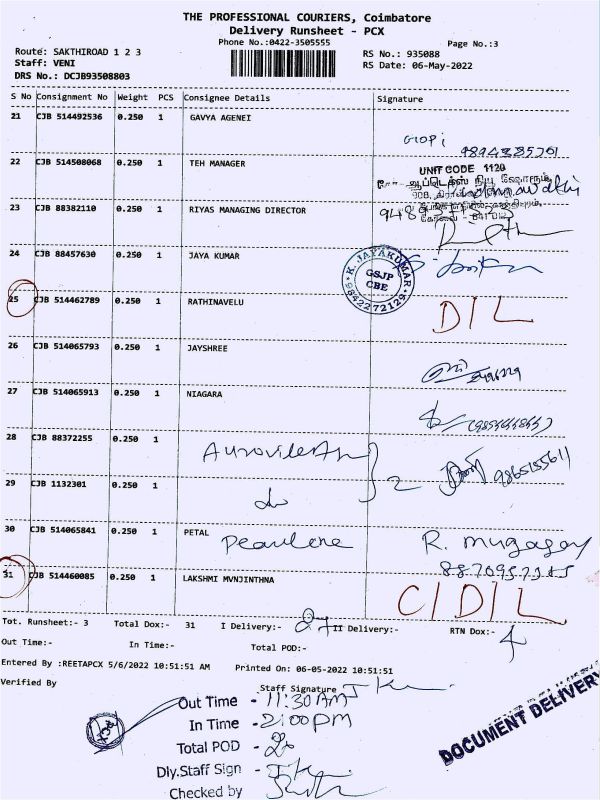 THE PROFESSIONAL COURIERS, Coimbatore
Delivery Runsheet - PCX
Phone No.:0422-3505555
Page No.:3
Route: SAKTHIROAD 1 2 3
RS No.: 935088
Staff: VENI
RS Date: 06-May-2022
DRS No.: DCJB93508803
S No Consignment No Weight PCS Consignee Details Signature
21 CJB 514492536 0.250 1 GAVYA AGENEI
Gopi
22 CJB 514508068 0.250 1 TEH MANAGER
UNIT CODE 1120
23 CJB 88382110 0.250 1 RIYAS MANAGING DIRECTOR
24 CJB 88457630 0.250 1 JAYA KUMAR
K. JAYAKUMAR
GSJP
CBE
9842272129
25 CJB 514462789 0.250 1 RATHINAVELU
D/L
26 CJB 514065793 0.250 1 JAYSHREE
27 CJB 514065913 0.250 1 NIAGARA
28 CJB 88372255 0.250 1
2
9865155611
29 CJB 1132301 0.250 1
do
30 CJB 514065841 0.250 1 PETAL
Pearlene
R. Mugagay
31 CJB 514460085 0.250 1 LAKSHMI MVNJINTHNA
C/D/L
Tot. Runsheet:- 3 Total Dox:- 31 I Delivery:- 27 II Delivery:- RTN Dox:- 4
Out Time:- In Time:- Total POD:-
Entered By :REETAPCX 5/6/2022 10:51:51 AM Printed On: 06-05-2022 10:51:51
Verified By Staff Signature
Out Time - 11:30 AM
In Time - 2:00 PM
Total POD -
Dly.Staff Sign -
Checked by
DOCUMENT DELIVERY